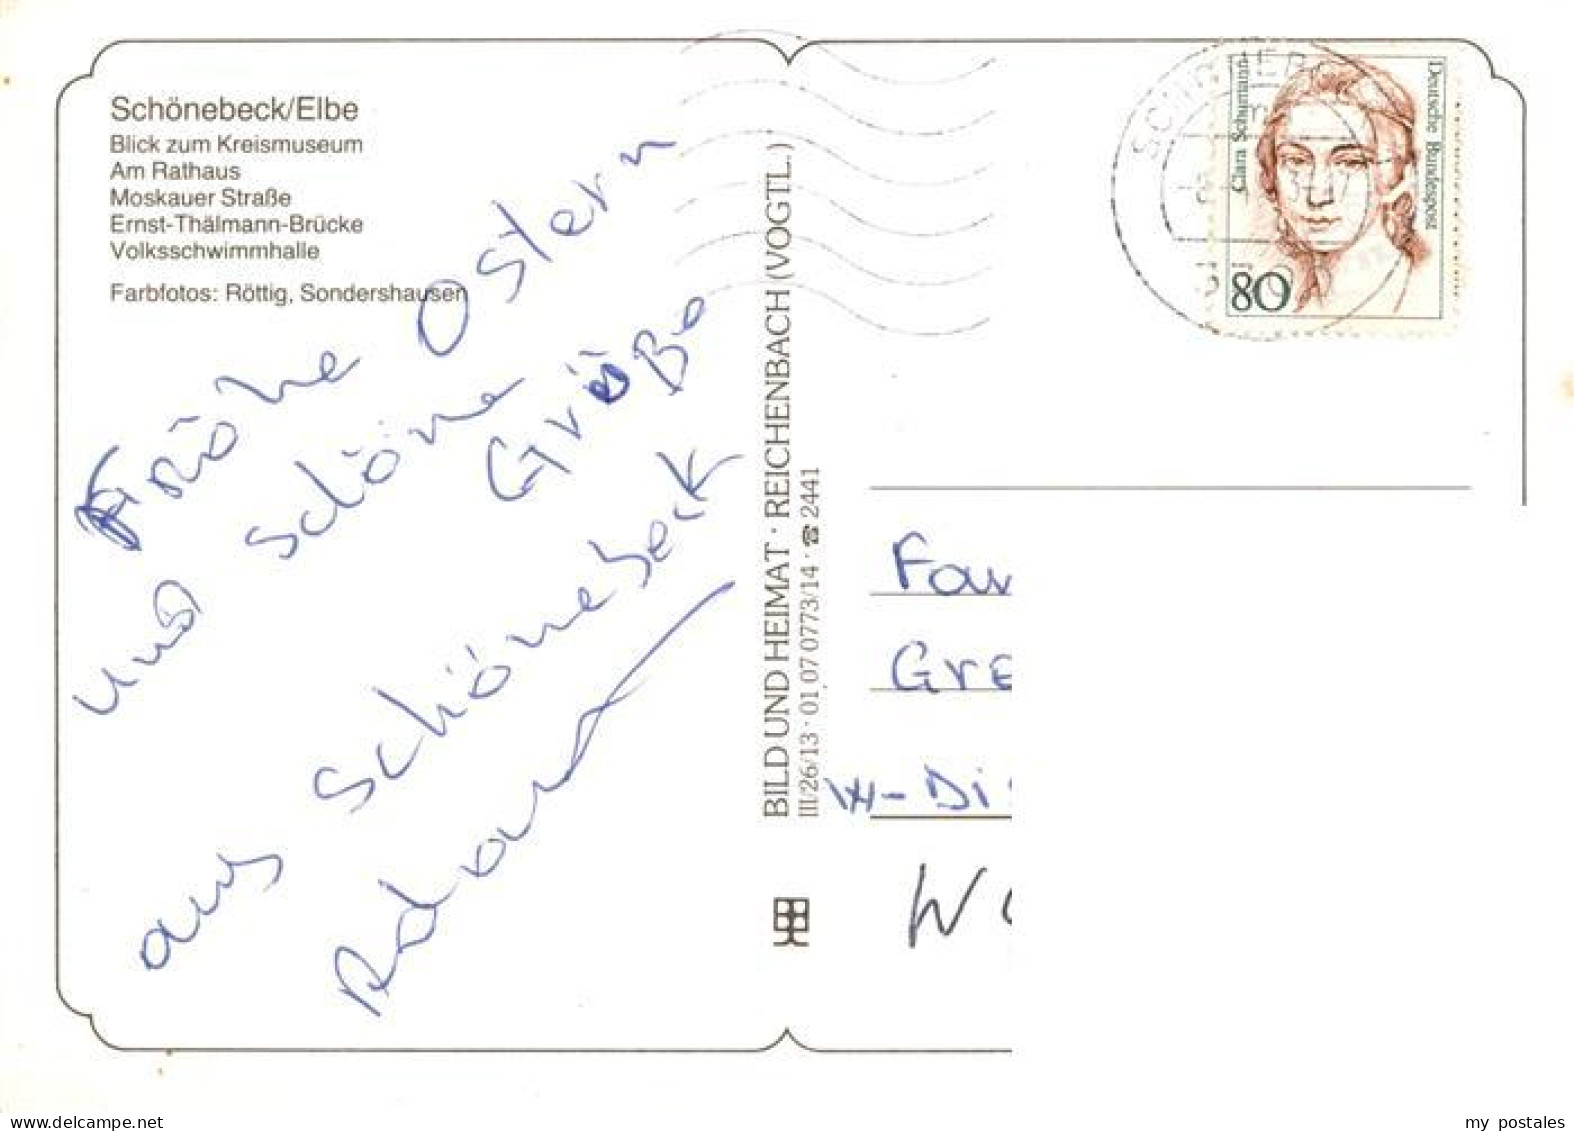 Schönebeck/Elbe
Blick zum Kreismuseum
Am Rathaus
Moskauer Straße
Ernst-Thälmann-Brücke
Volksschwimmhalle
Farbfotos: Röttig, Sondershausen
Fröhe Ostern
und schöne Grüße
aus Schönebeck
BILD UND HEIMAT · REICHENBACH (VOGTL.)
III/26/13 · 01 07 0773/14 · ☎ 2441
Clara Schumann
Deutsche Bundespost
80
Gre
W-Di
W
www.delcampe.net
my postales